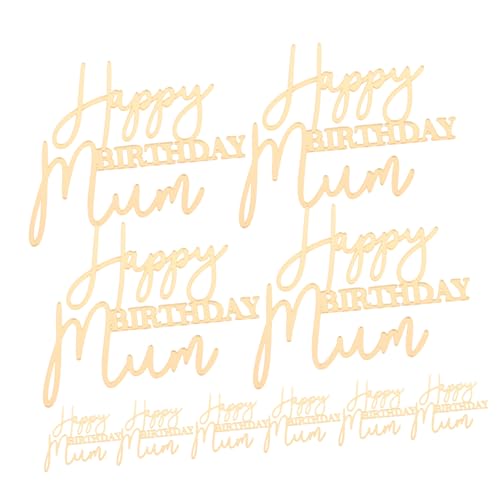 Happy
BIRTHDAY
Mum
Happy
BIRTHDAY
Mum
Happy
BIRTHDAY
Mum
Happy
BIRTHDAY
Mum
Happy
BIRTHDAY
Mum
Happy
BIRTHDAY
Mum
Happy
BIRTHDAY
Mum
Happy
BIRTHDAY
Mum
Happy
BIRTHDAY
Mum
Happy
BIRTHDAY
Mum